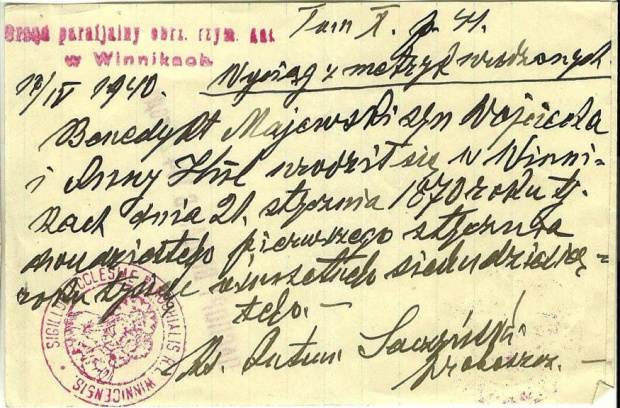 Tom X. p. 41.
Urząd parafjalny obrz. rzym. kat.
w Winnikach
12/IV 1940. Wyciąg z metryk urodzonych.
Benedykt Majewski syn Wojciecha
i Anny urodził się w Winni-
kach dnia 21. stycznia 1870 roku tj.
dwudziestego pierwszego stycznia
roku tysiąc ośmsetnego siedmdziesią-
tego. —
Ks. Antoni
proboszcz. —
SIGILLUM ECCLESIAE PAROCHIALIS R. WINNICENSIS